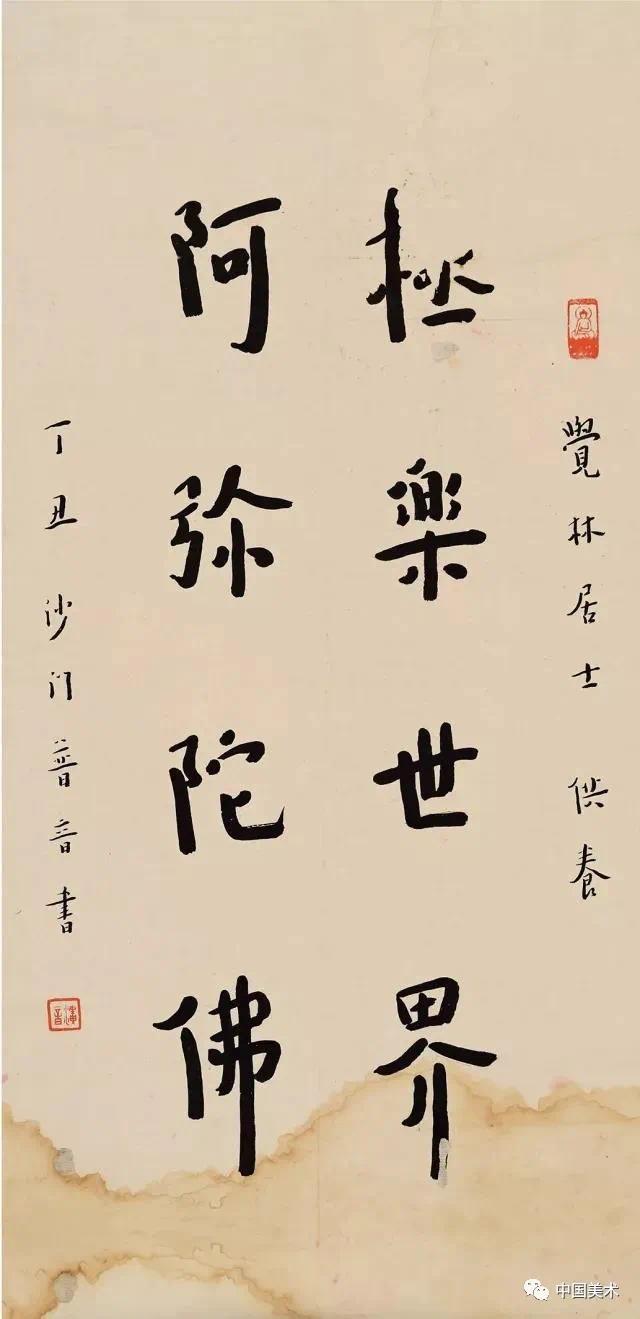 覺林居士供養
極樂世界
阿弥陀佛
丁丑沙门普音書
演音
中国美术